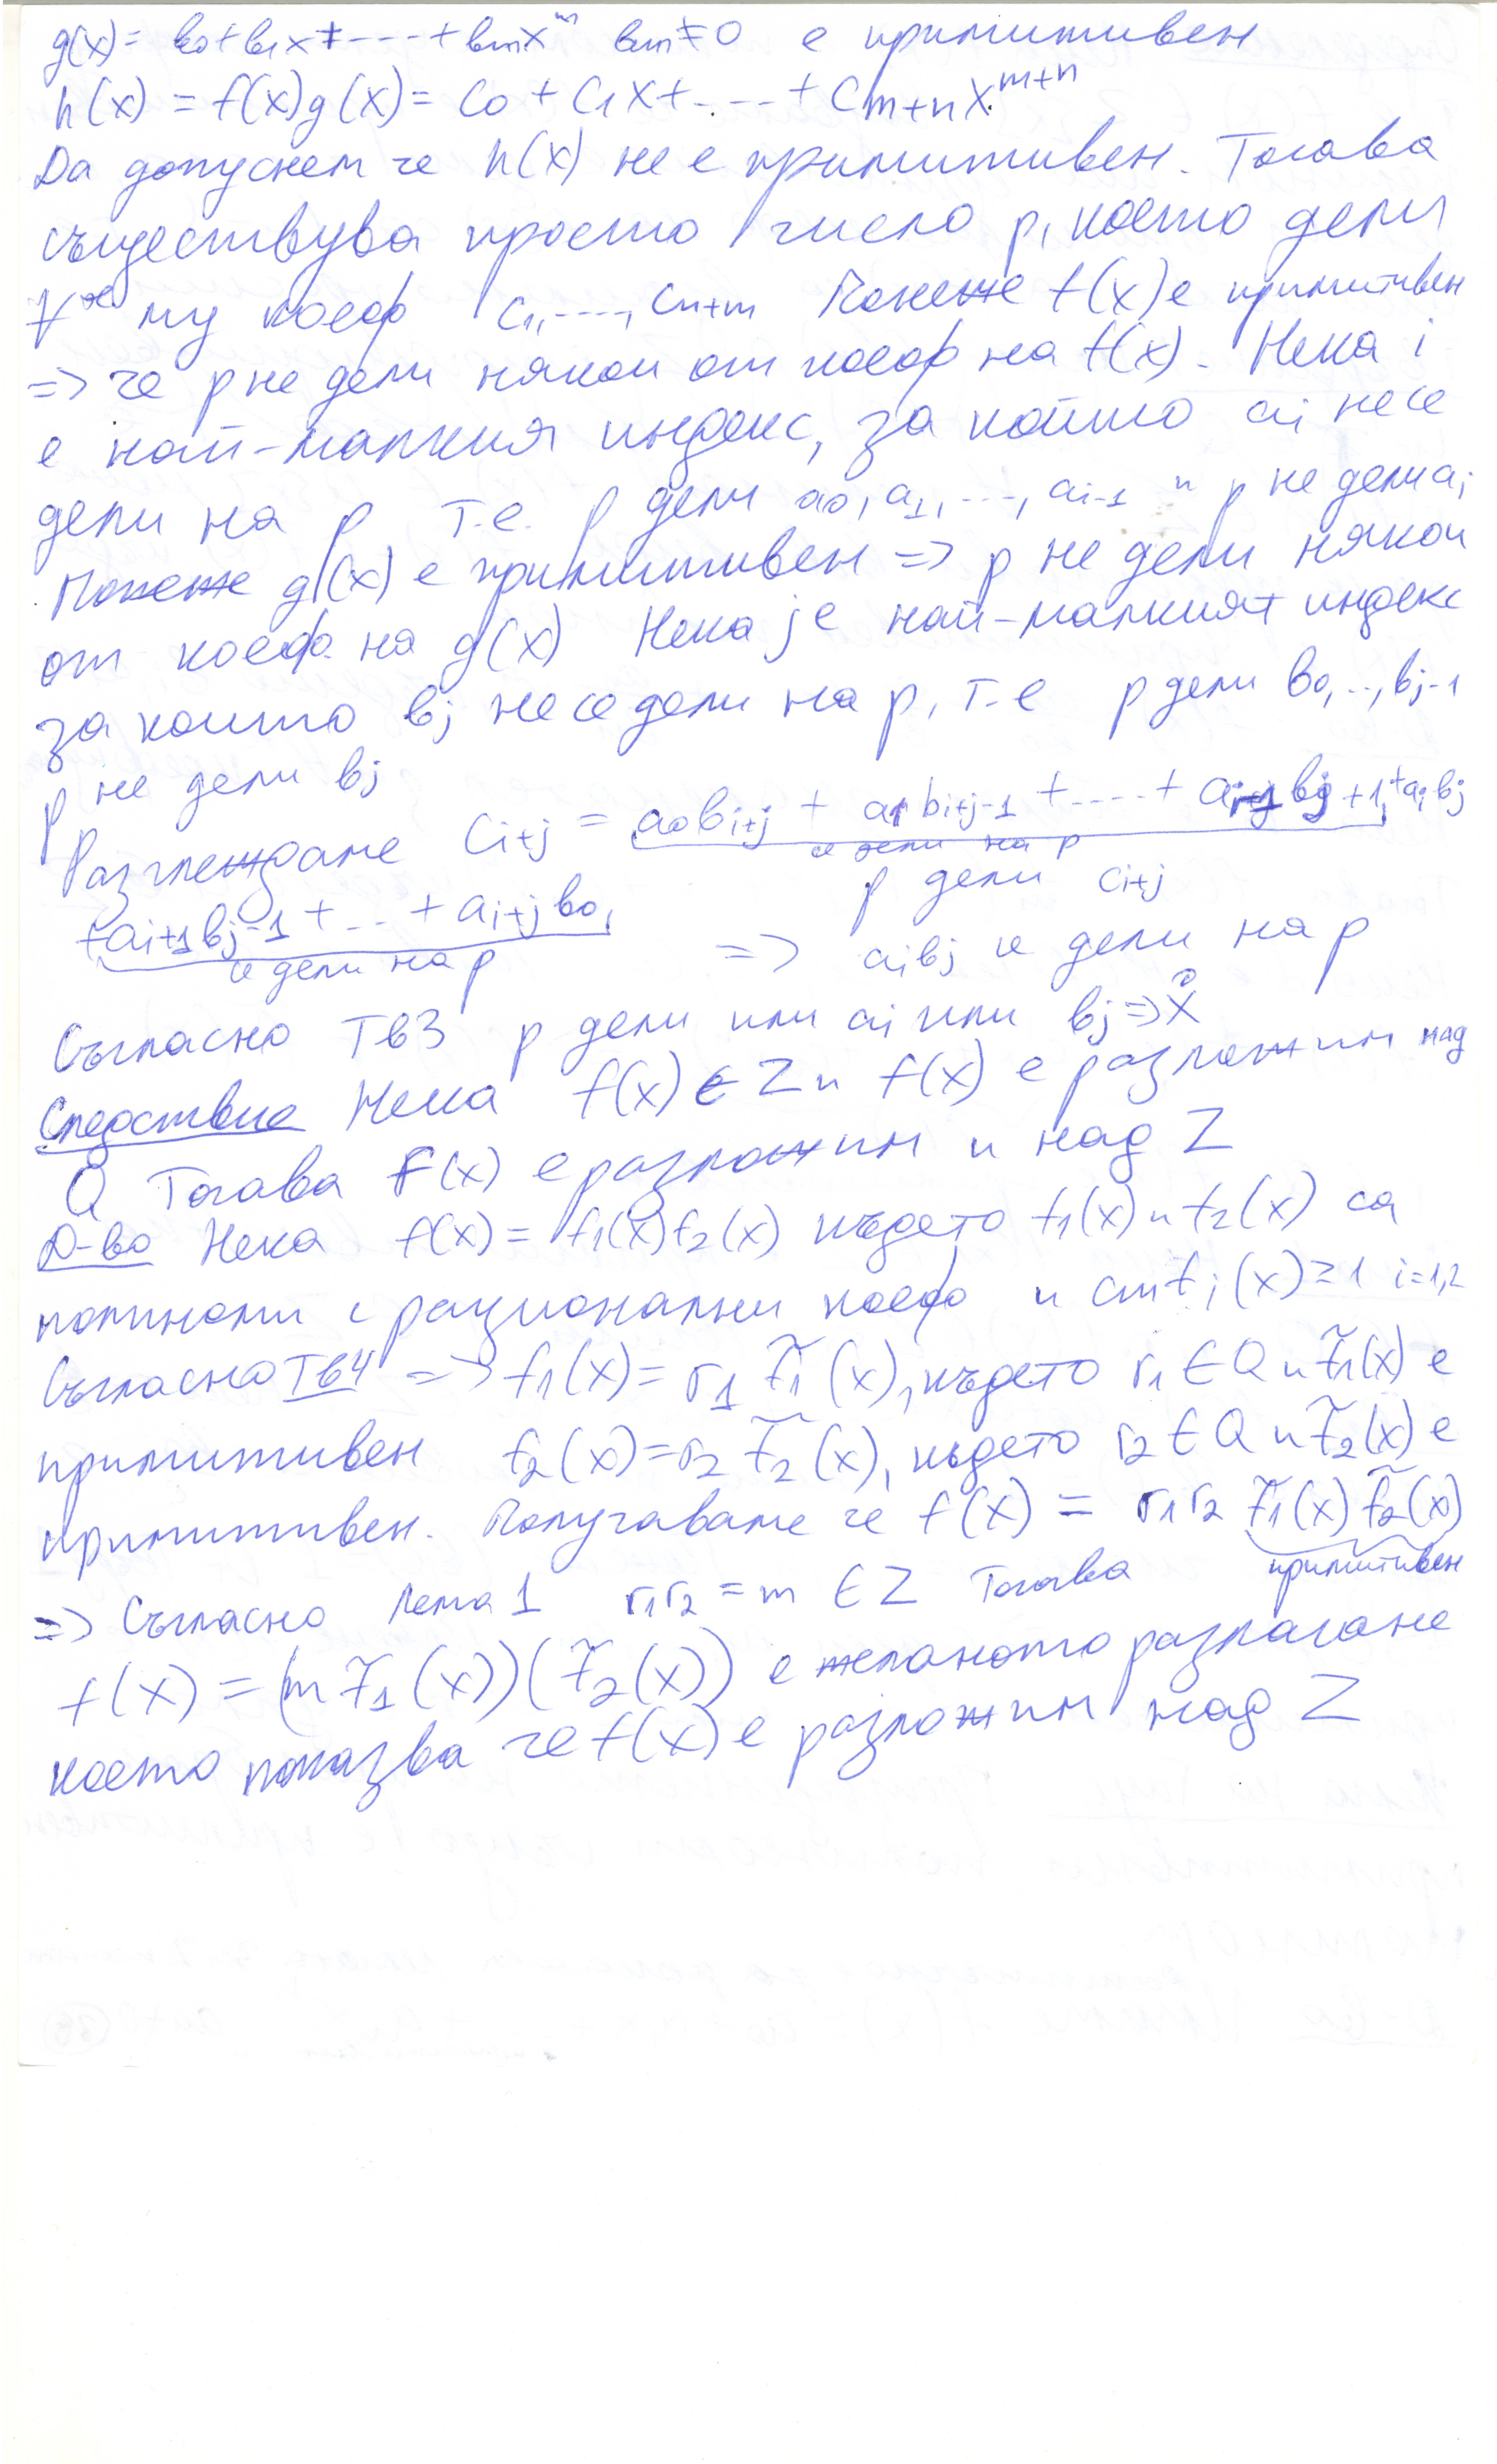 g(x) = b0 + b1x + ---- + bmx^m bm ≠ 0 е примитивен
h(x) = f(x)g(x) = c0 + c1x + ---- + cm+nx^m+n
Да допуснем че h(x) не е примитивен. Тогава
съществува просто число p, което дели
∀ му коеф c1, ----, cn+m Понеже f(x) е примитивен
=> че p не дели някои от коеф на f(x). Нека i
е най-малкия индекс, за който ai не се
дели на p т.е. p дели a0, a1, ---, ai-1 и p не дели ai
Понеже g(x) е примитивен => p не дели някои
от коеф. на g(x) Нека j е най-малкият индекс
за които bj не се дели на p, т-е p дели b0, .., bj-1
p не дели bj
Разглеждаме ci+j = a0bi+j + a1bi+j-1 + ---- + ai-1bj+1 + aibj
се дели на p
+ai+1bj-1 + .. + ai+jb0
p дели ci+j
се дели на p
=> aibj се дели на p
Съгласно Тв3 p дели или ai или bj =>
Следствие Нека f(x) ∈ Z и f(x) е разложим над
Q Тогава F(x) е разложим и над Z
Д-во Нека f(x) = f1(x)f2(x) където f1(x) и f2(x) са
полиноми с рационални коеф и ст fi(x) ≥ 1 i=1,2
Съгласно Тв4 => f1(x) = r1 f̃1(x), където r1 ∈ Q и f̃1(x) е
примитивен f2(x) = r2 f̃2(x), където r2 ∈ Q и f̃2(x) е
примитивен. Получаваме че f(x) = r1r2 f̃1(x) f̃2(x)
примитивен
=> Съгласно Лема 1 r1r2 = m ∈ Z Тогава
f(x) = (m f̃1(x))(f̃2(x)) е желаното разлагане
което показва че f(x) е разложим над Z